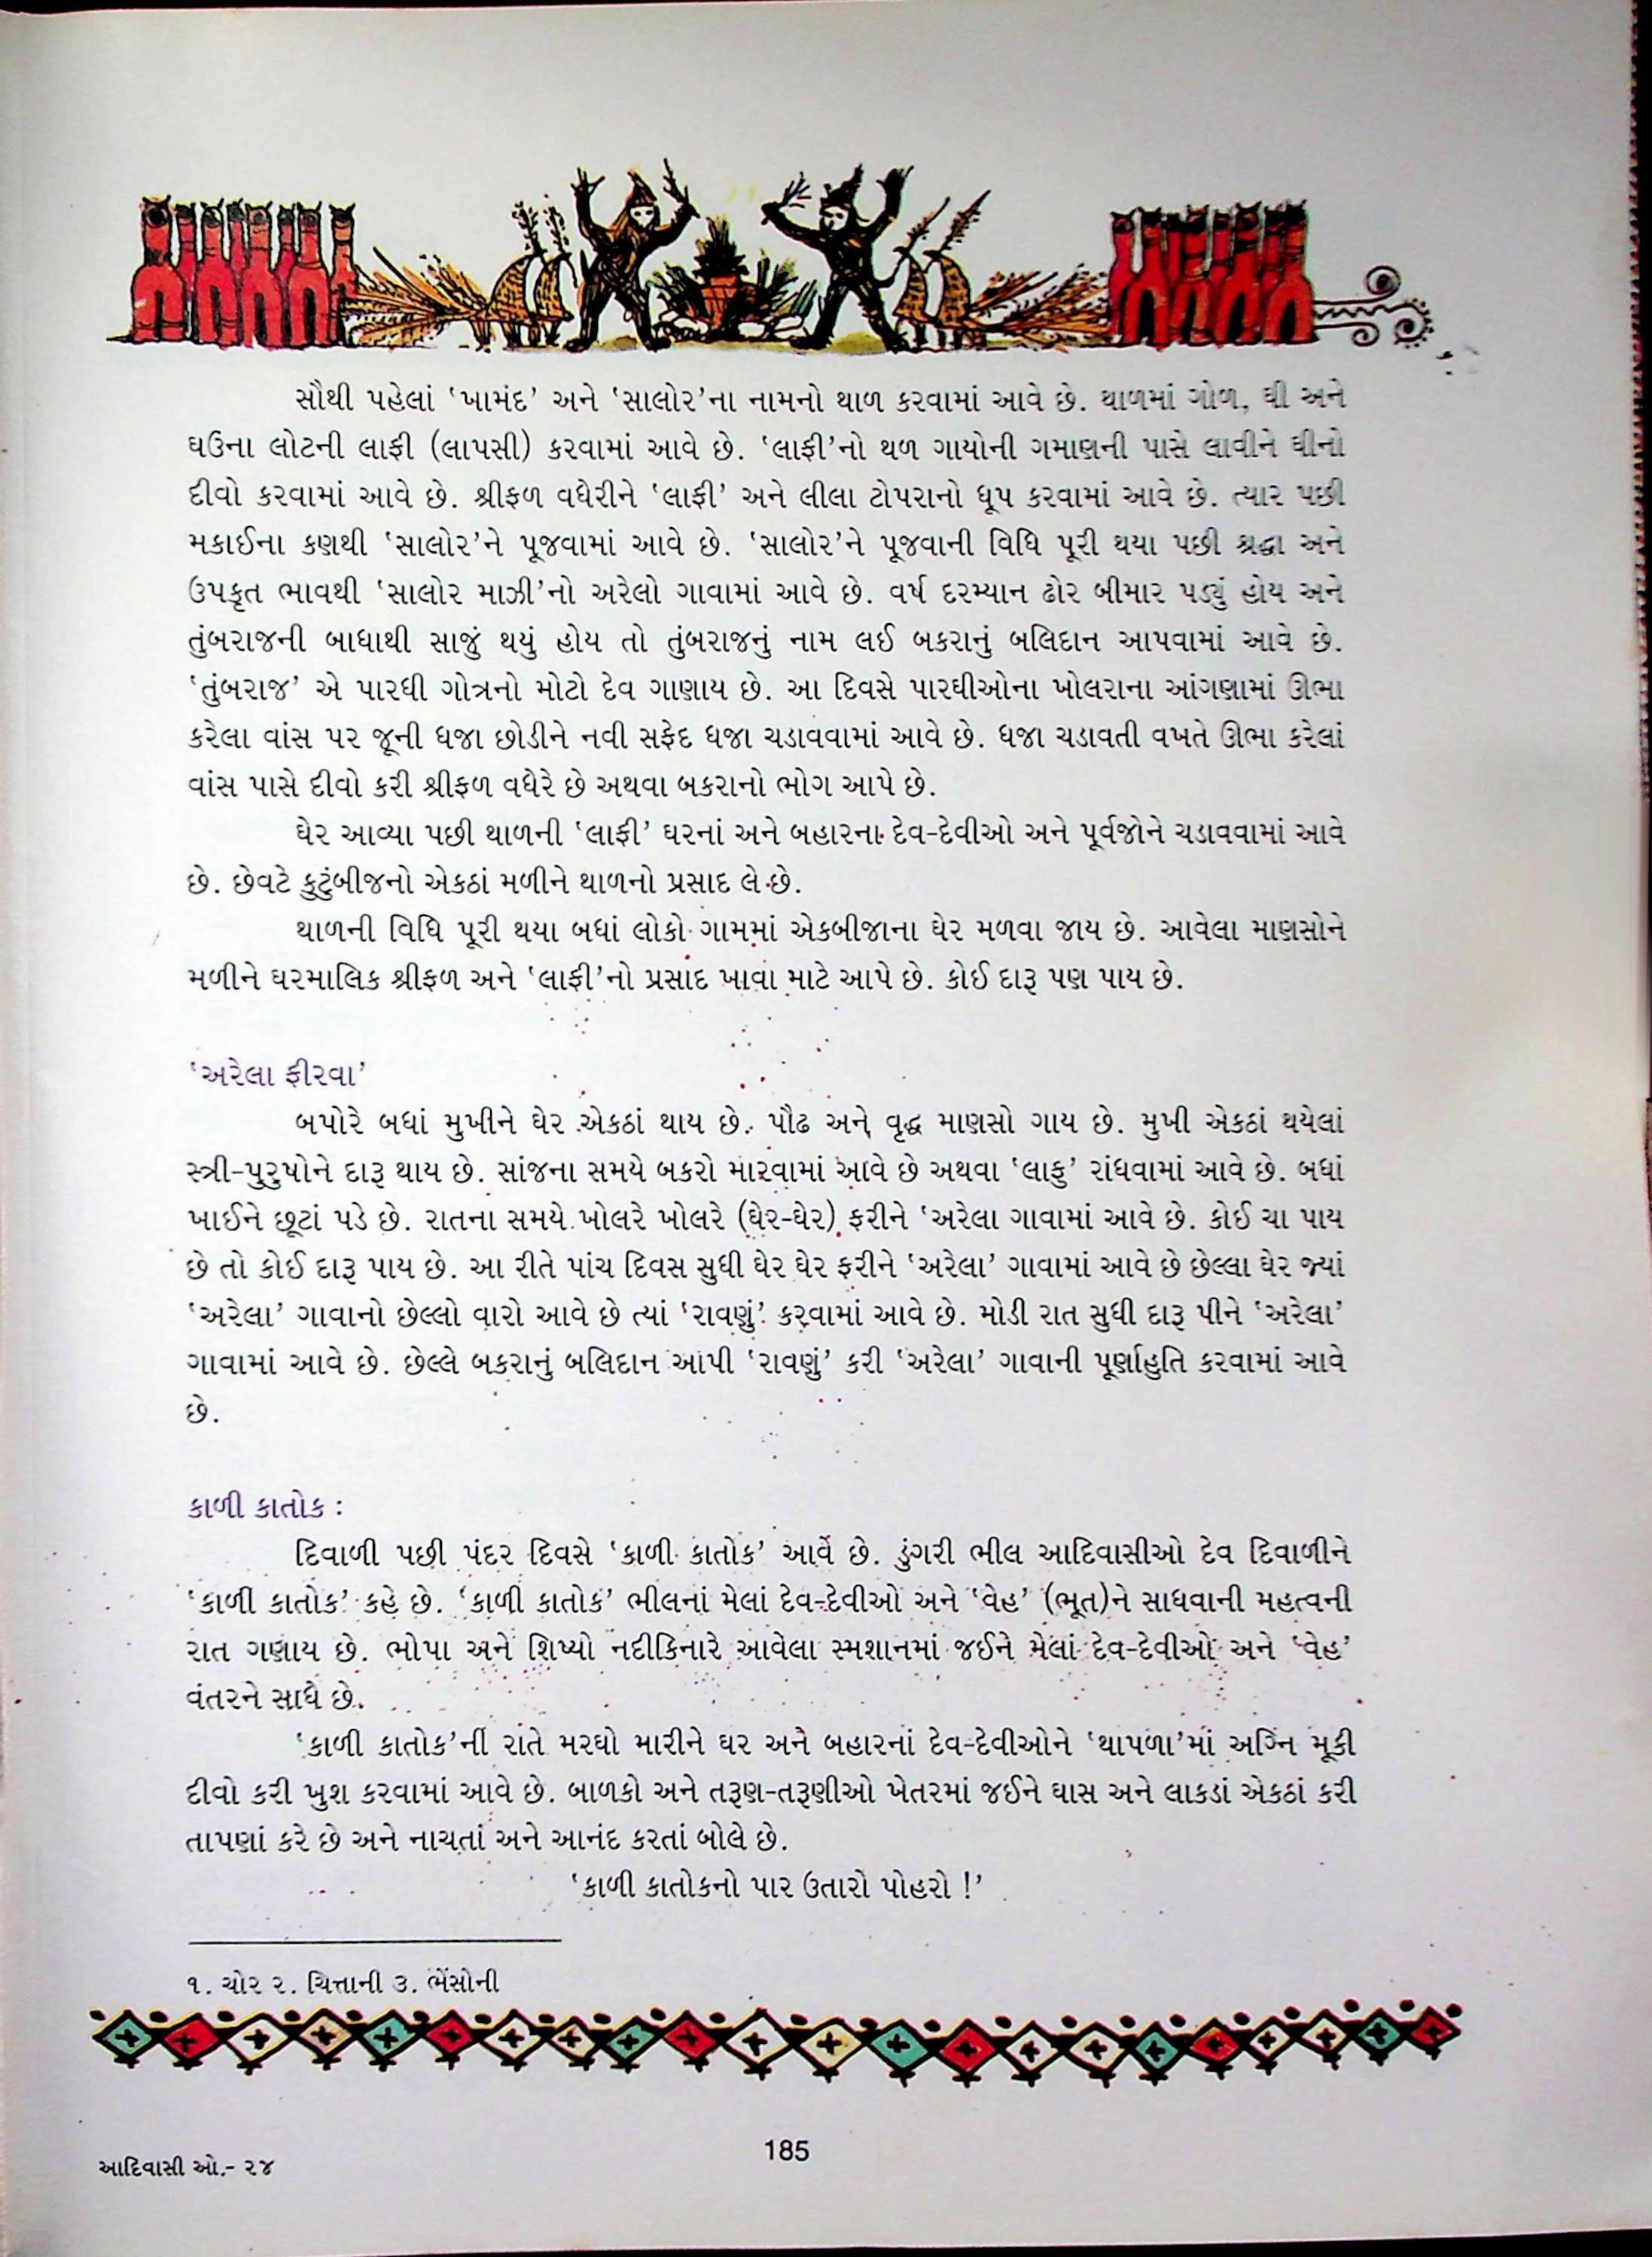 સૌથી પહેલાં ‘ખામંદ’ અને ‘સાલોર’ના નામનો થાળ કરવામાં આવે છે. થાળમાં ગોળ, ઘી અને
ઘઉંના લોટની લાફી (લાપસી) કરવામાં આવે છે. ‘લાફી’નો થળ ગાયોની ગમાણની પાસે લાવીને ઘીનો
દીવો કરવામાં આવે છે. શ્રીફળ વધેરીને ‘લાફી’ અને લીલા ટોપરાનો ધૂપ કરવામાં આવે છે. ત્યાર પછી
મકાઈના કણથી ‘સાલોર’ને પૂજવામાં આવે છે. ‘સાલોર’ને પૂજવાની વિધિ પૂરી થયા પછી શ્રદ્ધા અને
ઉપકૃત ભાવથી ‘સાલોર માઝી’નો અરેલો ગાવામાં આવે છે. વર્ષ દરમ્યાન ઢોર બીમાર પડ્યું હોય અને
તુંબરાજની બાધાથી સાજું થયું હોય તો તુંબરાજનું નામ લઈ બકરાનું બલિદાન આપવામાં આવે છે.
‘તુંબરાજ’ એ પારધી ગોત્રનો મોટો દેવ ગાણાય છે. આ દિવસે પારઘીઓના ખોલરાના આંગણામાં ઊભા
કરેલા વાંસ પર જૂની ધજા છોડીને નવી સફેદ ધજા ચડાવવામાં આવે છે. ધજા ચડાવતી વખતે ઊભા કરેલાં
વાંસ પાસે દીવો કરી શ્રીફળ વધેરે છે અથવા બકરાનો ભોગ આપે છે.
ઘેર આવ્યા પછી થાળની ‘લાફી’ ઘરનાં અને બહારના દેવ-દેવીઓ અને પૂર્વજોને ચડાવવામાં આવે
છે. છેવટે કુટુંબીજનો એકઠાં મળીને થાળનો પ્રસાદ લે છે.
થાળની વિધિ પૂરી થયા બધાં લોકો ગામમાં એકબીજાના ઘેર મળવા જાય છે. આવેલા માણસોને
મળીને ઘરમાલિક શ્રીફળ અને ‘લાફી’નો પ્રસાદ ખાવા માટે આપે છે. કોઈ દારૂ પણ પાય છે.
‘અરેલા ફીરવા’
બપોરે બધાં મુખીને ઘેર એકઠાં થાય છે. પૌઢ અને વૃદ્ધ માણસો ગાય છે. મુખી એકઠાં થયેલાં
સ્ત્રી-પુરુષોને દારૂ થાય છે. સાંજના સમયે બકરો મારવામાં આવે છે અથવા ‘લાફુ’ રાંધવામાં આવે છે. બધાં
ખાઈને છૂટાં પડે છે. રાતના સમયે ખોલરે ખોલરે (ઘેર-ઘેર) ફરીને ‘અરેલા ગાવામાં આવે છે. કોઈ ચા પાય
છે તો કોઈ દારૂ પાય છે. આ રીતે પાંચ દિવસ સુધી ઘેર ઘેર ફરીને ‘અરેલા’ ગાવામાં આવે છે છેલ્લા ઘેર જ્યાં
‘અરેલા’ ગાવાનો છેલ્લો વારો આવે છે ત્યાં ‘રાવણું’ કરવામાં આવે છે. મોડી રાત સુધી દારૂ પીને ‘અરેલા’
ગાવામાં આવે છે. છેલ્લે બકરાનું બલિદાન આપી ‘રાવણું’ કરી ‘અરેલા’ ગાવાની પૂર્ણાહુતિ કરવામાં આવે
છે.
કાળી કાતોક :
દિવાળી પછી પંદર દિવસે ‘કાળી કાતોક’ આવે છે. ડુંગરી ભીલ આદિવાસીઓ દેવ દિવાળીને
‘કાળી કાતોક’ કહે છે. ‘કાળી કાતોક’ ભીલનાં મેલાં દેવ-દેવીઓ અને ‘વેહ’ (ભૂત)ને સાધવાની મહત્વની
રાત ગણાય છે. ભોપા અને શિષ્યો નદીકિનારે આવેલા સ્મશાનમાં જઈને મેલાં દેવ-દેવીઓ અને ‘વેહ’
વંતરને સાધે છે.
‘કાળી કાતોક’ની રાતે મરઘો મારીને ઘર અને બહારનાં દેવ-દેવીઓને ‘થાપળા’માં અગ્નિ મૂકી
દીવો કરી ખુશ કરવામાં આવે છે. બાળકો અને તરૂણ-તરૂણીઓ ખેતરમાં જઈને ઘાસ અને લાકડાં એકઠાં કરી
તાપણાં કરે છે અને નાચતાં અને આનંદ કરતાં બોલે છે.
‘કાળી કાતોકનો પાર ઉતારો પોહરો !’
૧. ચોર ૨. ચિત્તાની ૩. ભેંસોની
185
આદિવાસી ઓ.- ૨૪